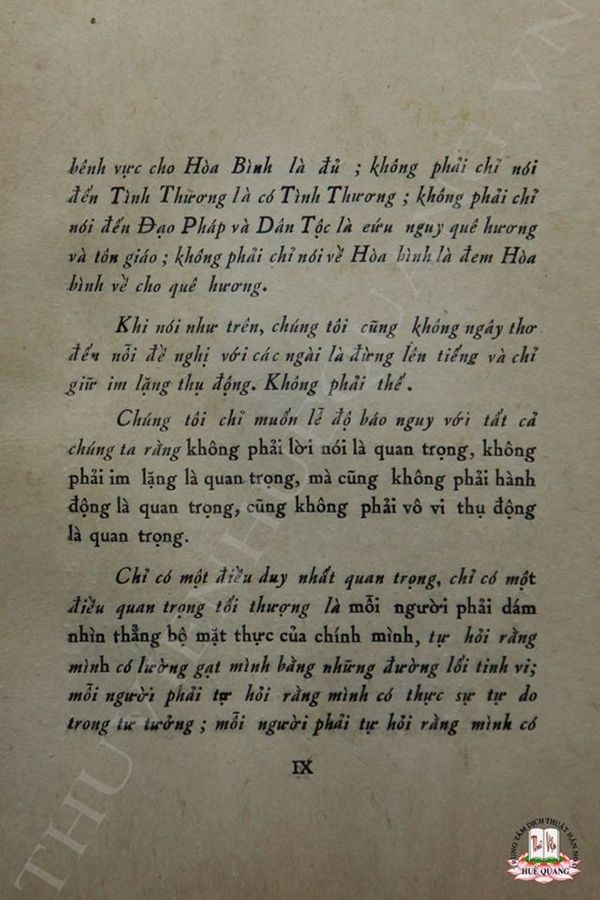 bênh vực cho Hòa Bình là đủ ; không phải chỉ nói
đến Tình Thương là có Tình Thương ; không phải chỉ
nói đến Đạo Pháp và Dân Tộc là cứu nguy quê hương
và tôn giáo ; không phải chỉ nói về Hòa bình là đem Hòa
bình về cho quê hương.
Khi nói như trên, chúng tôi cũng không ngây thơ
đến nỗi đề nghị với các ngài là đừng lên tiếng và chỉ
giữ im lặng thụ động. Không phải thế.
Chúng tôi chỉ muốn lễ độ báo nguy với tất cả
chúng ta rằng không phải lời nói là quan trọng, không
phải im lặng là quan trọng, mà cũng không phải hành
động là quan trọng, cũng không phải vô vi thụ động
là quan trọng.
Chỉ có một điều duy nhất quan trọng, chỉ có một
điều quan trọng tối thượng là mỗi người phải dám
nhìn thẳng bộ mặt thực của chính mình, tự hỏi rằng
mình có lường gạt mình bằng những đường lối tinh vi;
mỗi người phải tự hỏi rằng mình có thực sự tự do
trong tư tưởng ; mỗi người phải tự hỏi rằng mình có
IX
TRUNG TÂM DỊCH THUẬT HÁN NÔM
HUỆ QUANG